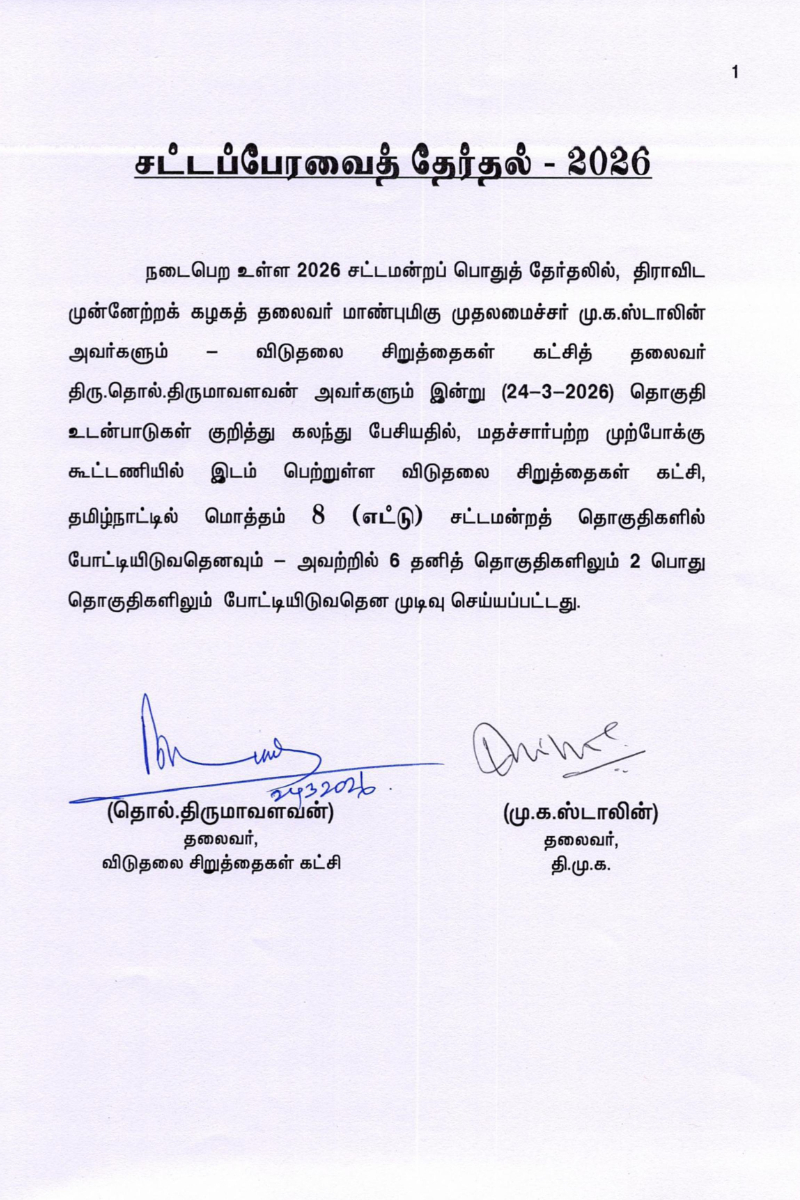 1
சட்டப்பேரவைத் தேர்தல் - 2026
நடைபெற உள்ள 2026 சட்டமன்றப் பொதுத் தேர்தலில், திராவிட
முன்னேற்றக் கழகத் தலைவர் மாண்புமிகு முதலமைச்சர் மு.க.ஸ்டாலின்
அவர்களும் – விடுதலை சிறுத்தைகள் கட்சித் தலைவர்
திரு.தொல்.திருமாவளவன் அவர்களும் இன்று (24–3–2026) தொகுதி
உடன்பாடுகள் குறித்து கலந்து பேசியதில், மதச்சார்பற்ற முற்போக்கு
கூட்டணியில் இடம் பெற்றுள்ள விடுதலை சிறுத்தைகள் கட்சி,
தமிழ்நாட்டில் மொத்தம் 8 (எட்டு) சட்டமன்றத் தொகுதிகளில்
போட்டியிடுவதெனவும் – அவற்றில் 6 தனித் தொகுதிகளிலும் 2 பொது
தொகுதிகளிலும் போட்டியிடுவதென முடிவு செய்யப்பட்டது.
2432026
(தொல்.திருமாவளவன்) (மு.க.ஸ்டாலின்)
தலைவர், தலைவர்,
விடுதலை சிறுத்தைகள் கட்சி தி.மு.க.